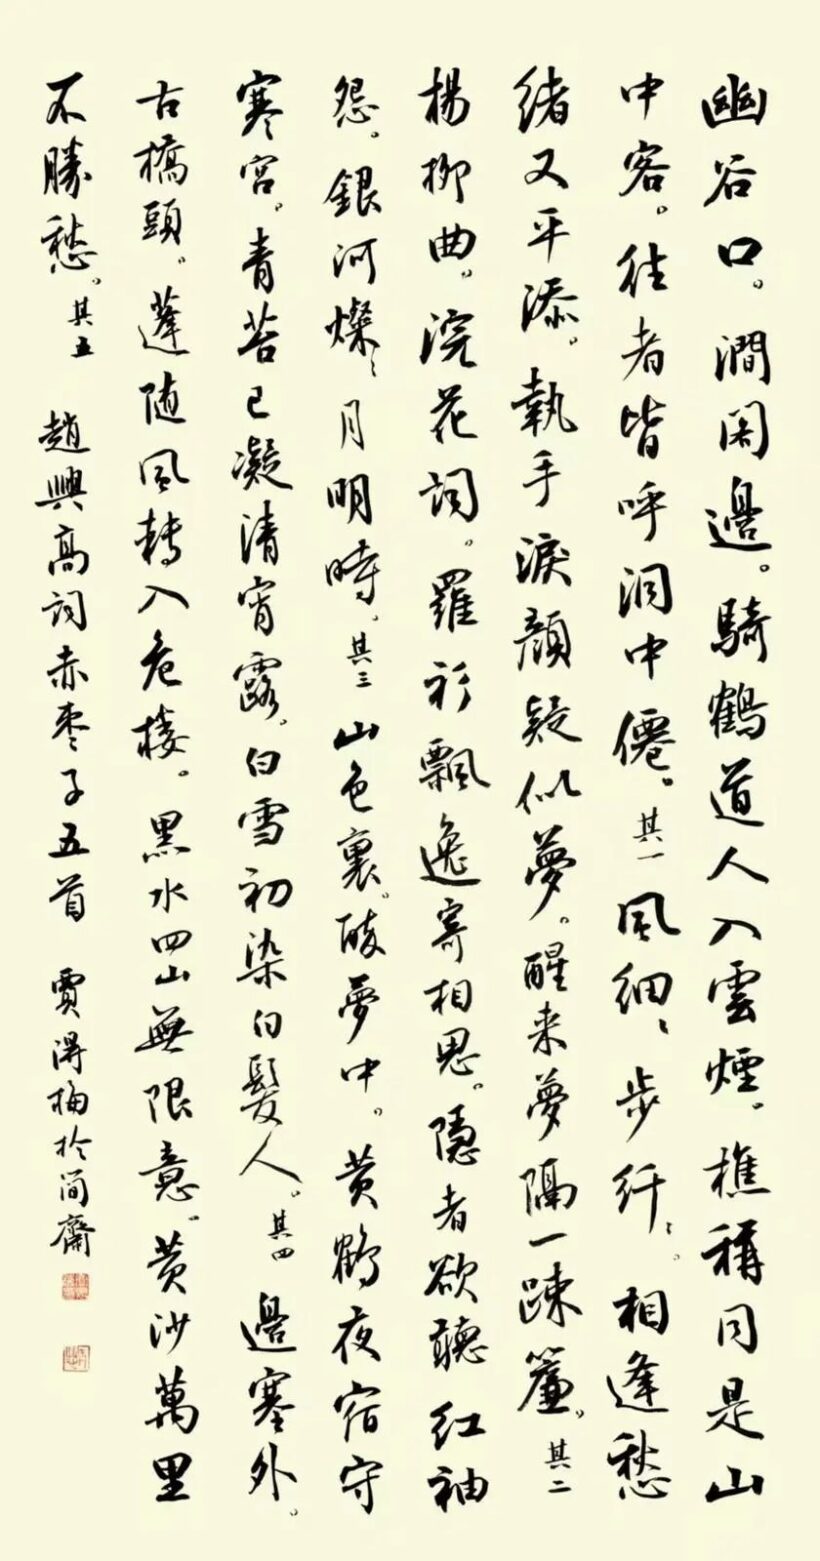 幽谷口。澗閑邊。騎鶴道人入雲煙。樵稱同是山
中客。往者皆呼洞中僊。其一風細、步纤、。相逢愁
绪又平添。執手淚顔疑似夢。醒来夢隔一踈簾。其二
楊柳曲。浣花詞。羅衫飄逸寄相思。隱者欲聽红袖
怨。銀河燦、月明時。其三山色裏。酸夢中。黄鶴夜宿守
寒宫。青苔已凝清宵露。白雪初染白髮人。其四邊塞外。
古橋頭。蓬随風轉入危楼。黑水四山無限意。黄沙萬里
不勝愁。其五 趙興高詞赤枣子五首 賈得梅於简齋